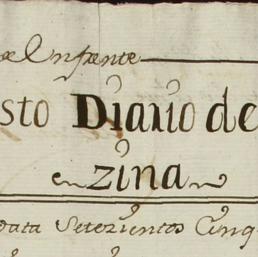 Enfrente
sto Diario de
zina
Data Setezientos Cinq